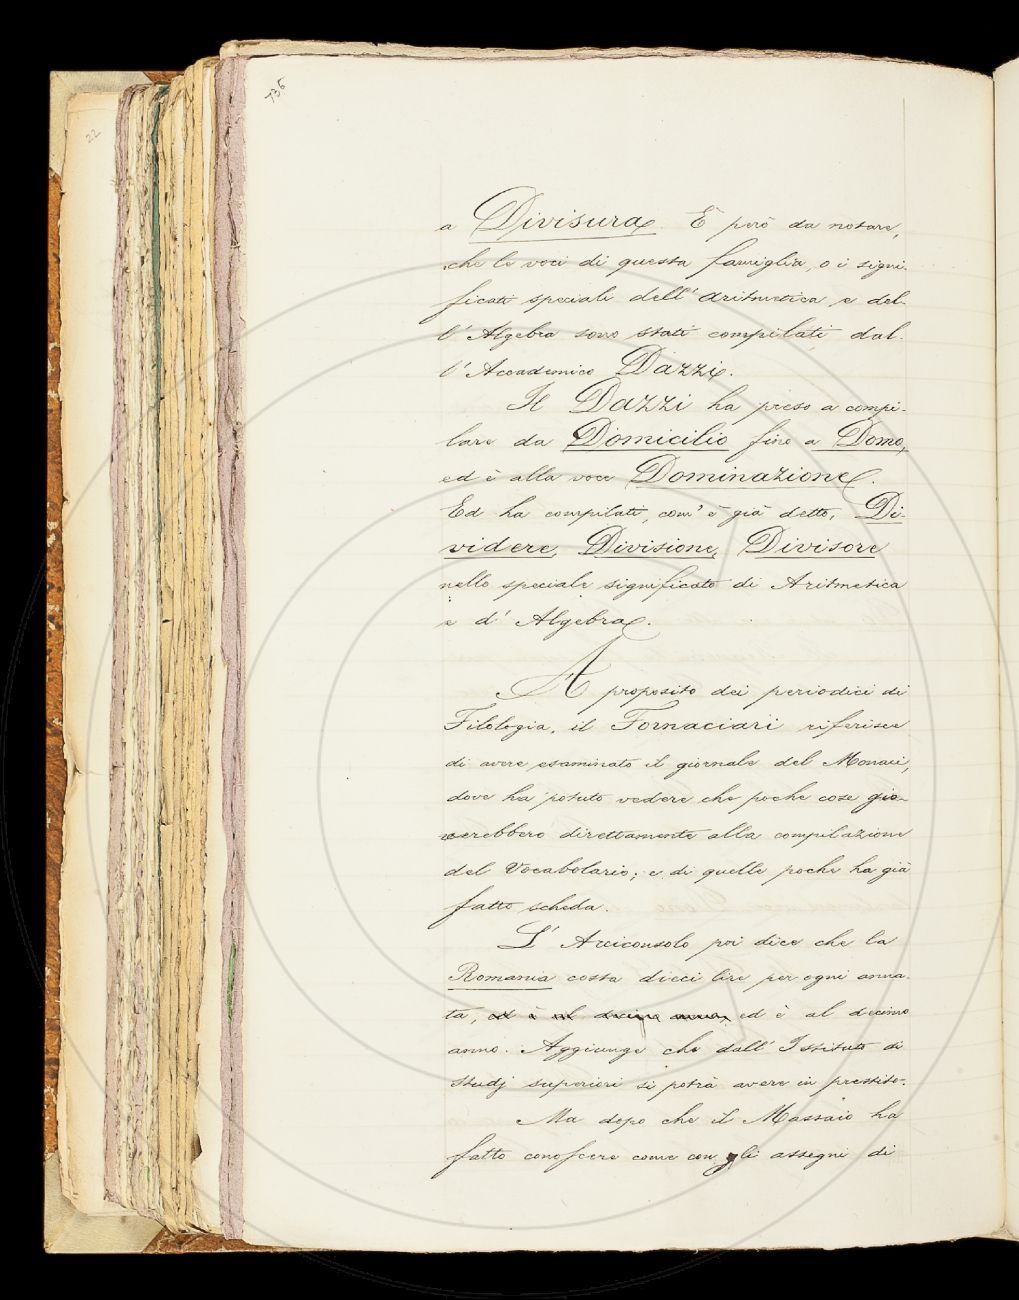 736
22
a Divisura. È però da notare,
che le voci di questa famiglia, o i signi-
ficati speciali dell'Aritmetica e del-
l'Algebra sono stati compilati dal-
l'Accademico Dazzi.
Il Dazzi ha preso a compi-
lare da Domicilio fino a Domo,
ed è alla voce Dominazione.
Ed ha compilati, com'è già detto, Di-
videre, Divisione, Divisore
nello speciale significato di Aritmetica
e d'Algebra.
A proposito dei periodici di
Filologia, il Fornaciari riferisce
di avere esaminato il giornale del Monaci,
dove ha potuto vedere che poche cose gio-
verebbero direttamente alla compilazione
del Vocabolario; e di quelle poche ha già
fatto scheda.
L'Arciconsolo poi dice che la
Romania costa dieci lire per ogni anna-
ta, ed è al decimo anno, ed è al decimo
anno. Aggiunge che dall'Istituto di
studj superiori si potrà avere in prestito.
Ma dopo che il Massaio ha
fatto conoscere come con gli assegni di